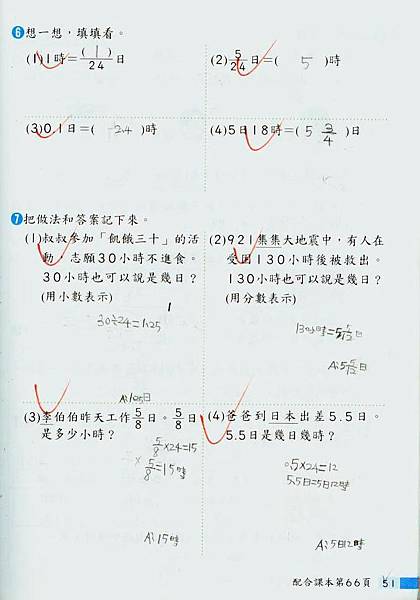 6 想一想，填填看。
(1) 1時=(1)/24日
(2) 5/24日=( 5 )時
(3) 0.1日=( 2.4 )時
(4) 5日18時=( 5 3/4 )日
7 把做法和答案記下來。
(1) 叔叔參加「飢餓三十」的活
動，志願30小時不進食。
30小時也可以說是幾日？
(用小數表示)
30÷24=1.25
A:1.25日
(2) 921集集大地震中，有人在
受困130小時後被救出。
130小時也可以說是幾日？
(用分數表示)
130時=5 5/12日
A:5 5/12日
(3) 李伯伯昨天工作5/8日。5/8日
是多少小時？
5/8×24=15
5/8=15時
A:15時
(4) 爸爸到日本出差5.5日。
5.5日是幾日幾時？
0.5×24=12
5.5日=5日12時
A:5日12時
配合課本第66頁 51